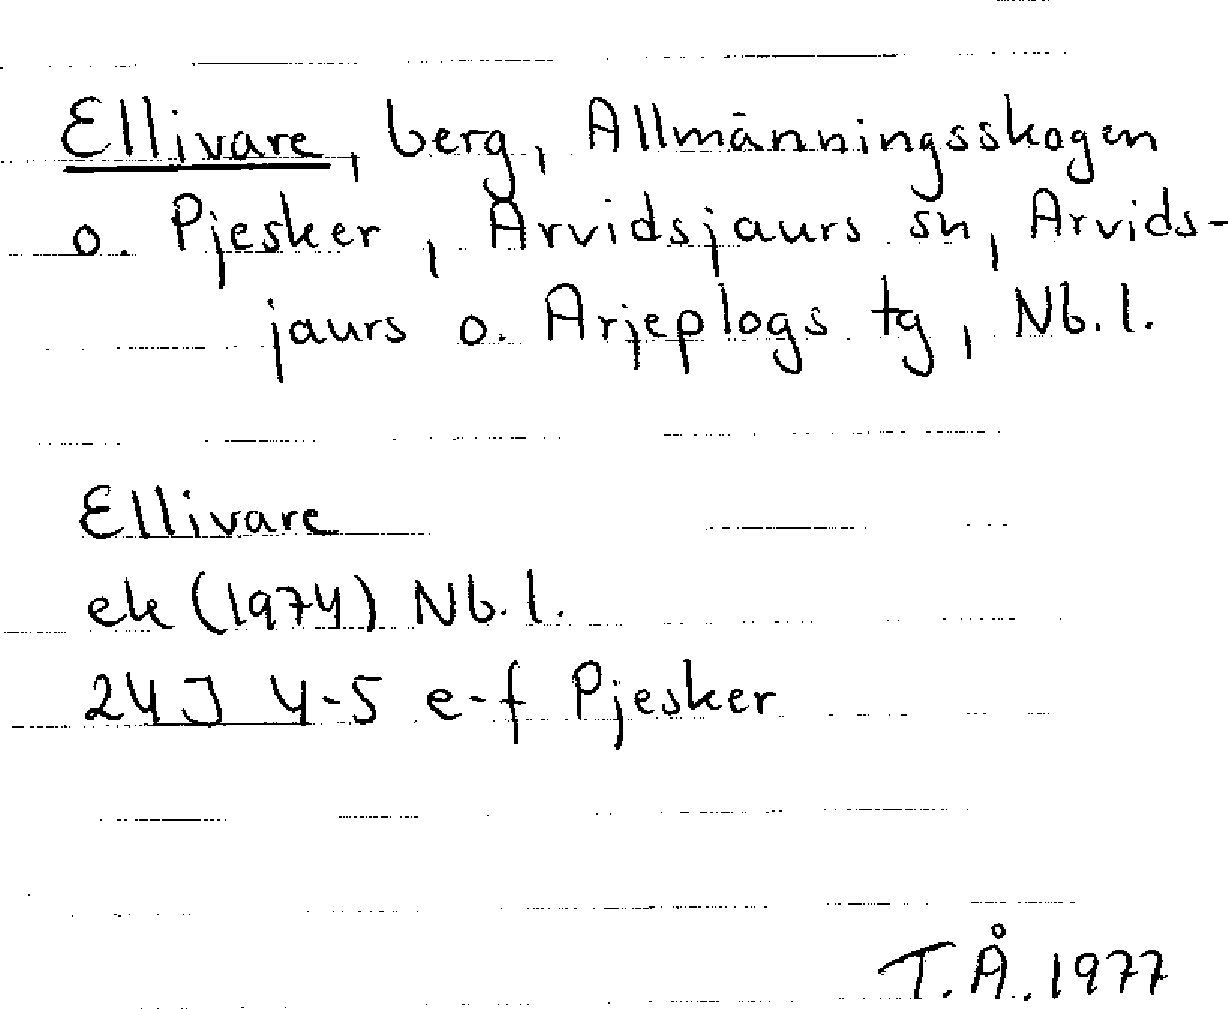 Ellivare, berg, Allmänningsskogen
o. Pjesker, Arvidsjaurs sn, Arvids-
jaurs o. Arjeplogs tg, Nb.l.
Ellivare
ek (1974) Nb.l.
24J 4-5 e-f Pjesker
T.Å. 1977